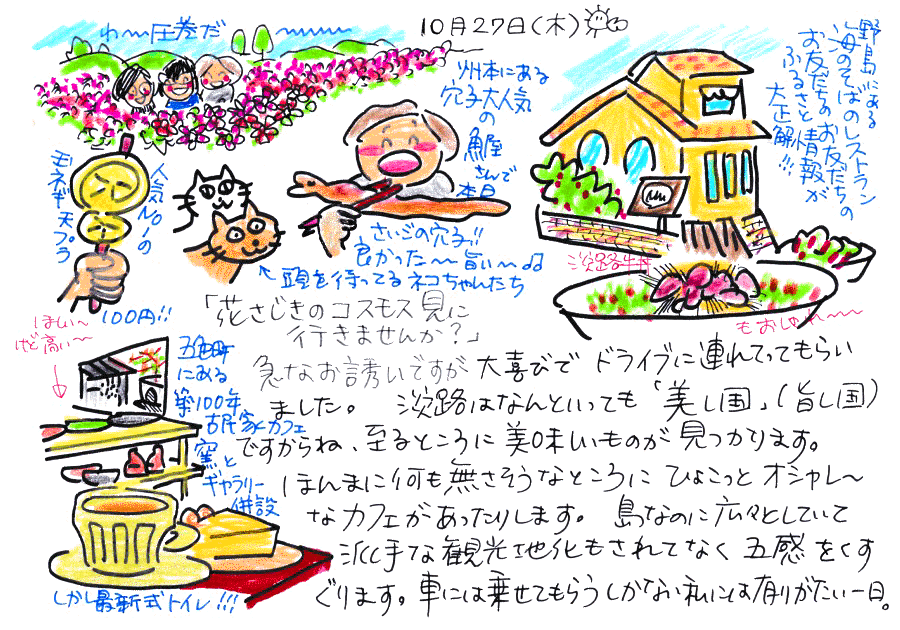 10月27日(木)
わ〜圧巻だ
州本にある
穴子大人気
の
魚屋
さんで
本日
さいごの穴子!!
良かった〜旨い〜♫
←頭を待ってるネコちゃんたち
野島にある
海のそばのレストラン
お友だちのお友だちの
ふるさと情報が
大正解!!
人気No1の
玉ネギ天プラ
100円!!
淡路牛丼
もおしゃれ〜
ほしい〜
けど高い〜
五色町
にある
築100年
古民家カフェ
窯と
ギャラリー
併設
しかし最新式トイレ!!!
「花さじきのコスモス見に
行きませんか?」
急なお誘いですが大喜びで ドライブに連れてってもらい
ました。 淡路はなんといっても「美し国」(旨し国)
ですからね、至るところに美味いものが見つかります。
ほんまに何も無さそうなところに ひょこっと オシャレ〜
なカフェがあったりします。 島なのに広々としていて
派手な観光地化もされてなく 五感をくす
ぐります。車には乗せてもらうしかない私には有りがたい一日。